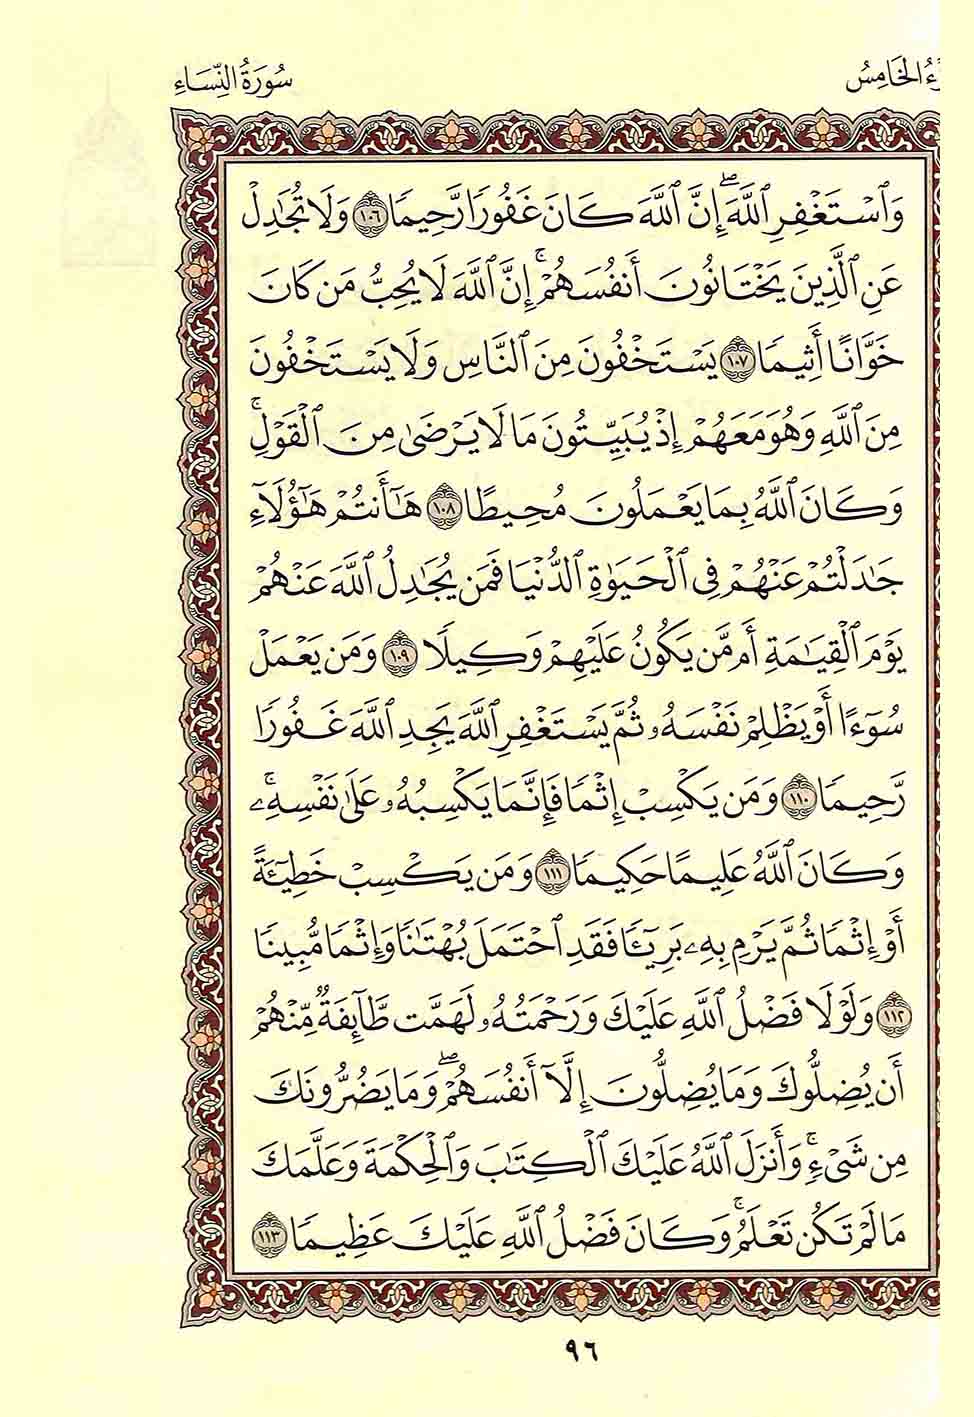 ـزْءُ الخَامِسُ سُورَةُ النِّسَاءِ
وَٱسْتَغْفِرِ ٱللَّهَ ۖ إِنَّ ٱللَّهَ كَانَ غَفُورًا رَّحِيمًا ۝١٠٦ وَلَا تُجَٰدِلْ
عَنِ ٱلَّذِينَ يَخْتَانُونَ أَنفُسَهُمْ ۚ إِنَّ ٱللَّهَ لَا يُحِبُّ مَن كَانَ
خَوَّانًا أَثِيمًا ۝١٠٧ يَسْتَخْفُونَ مِنَ ٱلنَّاسِ وَلَا يَسْتَخْفُونَ
مِنَ ٱللَّهِ وَهُوَ مَعَهُمْ إِذْ يُبَيِّتُونَ مَا لَا يَرْضَىٰ مِنَ ٱلْقَوْلِ ۚ
وَكَانَ ٱللَّهُ بِمَا يَعْمَلُونَ مُحِيطًا ۝١٠٨ هَٰٓأَنتُمْ هَٰٓؤُلَآءِ
جَٰدَلْتُمْ عَنْهُمْ فِى ٱلْحَيَوٰةِ ٱلدُّنْيَا فَمَن يُجَٰدِلُ ٱللَّهَ عَنْهُمْ
يَوْمَ ٱلْقِيَٰمَةِ أَم مَّن يَكُونُ عَلَيْهِمْ وَكِيلًا ۝١٠٩ وَمَن يَعْمَلْ
سُوٓءًا أَوْ يَظْلِمْ نَفْسَهُۥ ثُمَّ يَسْتَغْفِرِ ٱللَّهَ يَجِدِ ٱللَّهَ غَفُورًا
رَّحِيمًا ۝١١٠ وَمَن يَكْسِبْ إِثْمًا فَإِنَّمَا يَكْسِبُهُۥ عَلَىٰ نَفْسِهِۦ ۚ
وَكَانَ ٱللَّهُ عَلِيمًا حَكِيمًا ۝١١١ وَمَن يَكْسِبْ خَطِيٓـَٔةً
أَوْ إِثْمًا ثُمَّ يَرْمِ بِهِۦ بَرِيٓـًٔا فَقَدِ ٱحْتَمَلَ بُهْتَٰنًا وَإِثْمًا مُّبِينًا
۝١١٢ وَلَوْلَا فَضْلُ ٱللَّهِ عَلَيْكَ وَرَحْمَتُهُۥ لَهَمَّت طَّآئِفَةٌ مِّنْهُمْ
أَن يُضِلُّوكَ وَمَا يُضِلُّونَ إِلَّآ أَنفُسَهُمْ ۖ وَمَا يَضُرُّونَكَ
مِن شَىْءٍ ۚ وَأَنزَلَ ٱللَّهُ عَلَيْكَ ٱلْكِتَٰبَ وَٱلْحِكْمَةَ وَعَلَّمَكَ
مَا لَمْ تَكُن تَعْلَمُ ۚ وَكَانَ فَضْلُ ٱللَّهِ عَلَيْكَ عَظِيمًا ۝١١٣
٩٦